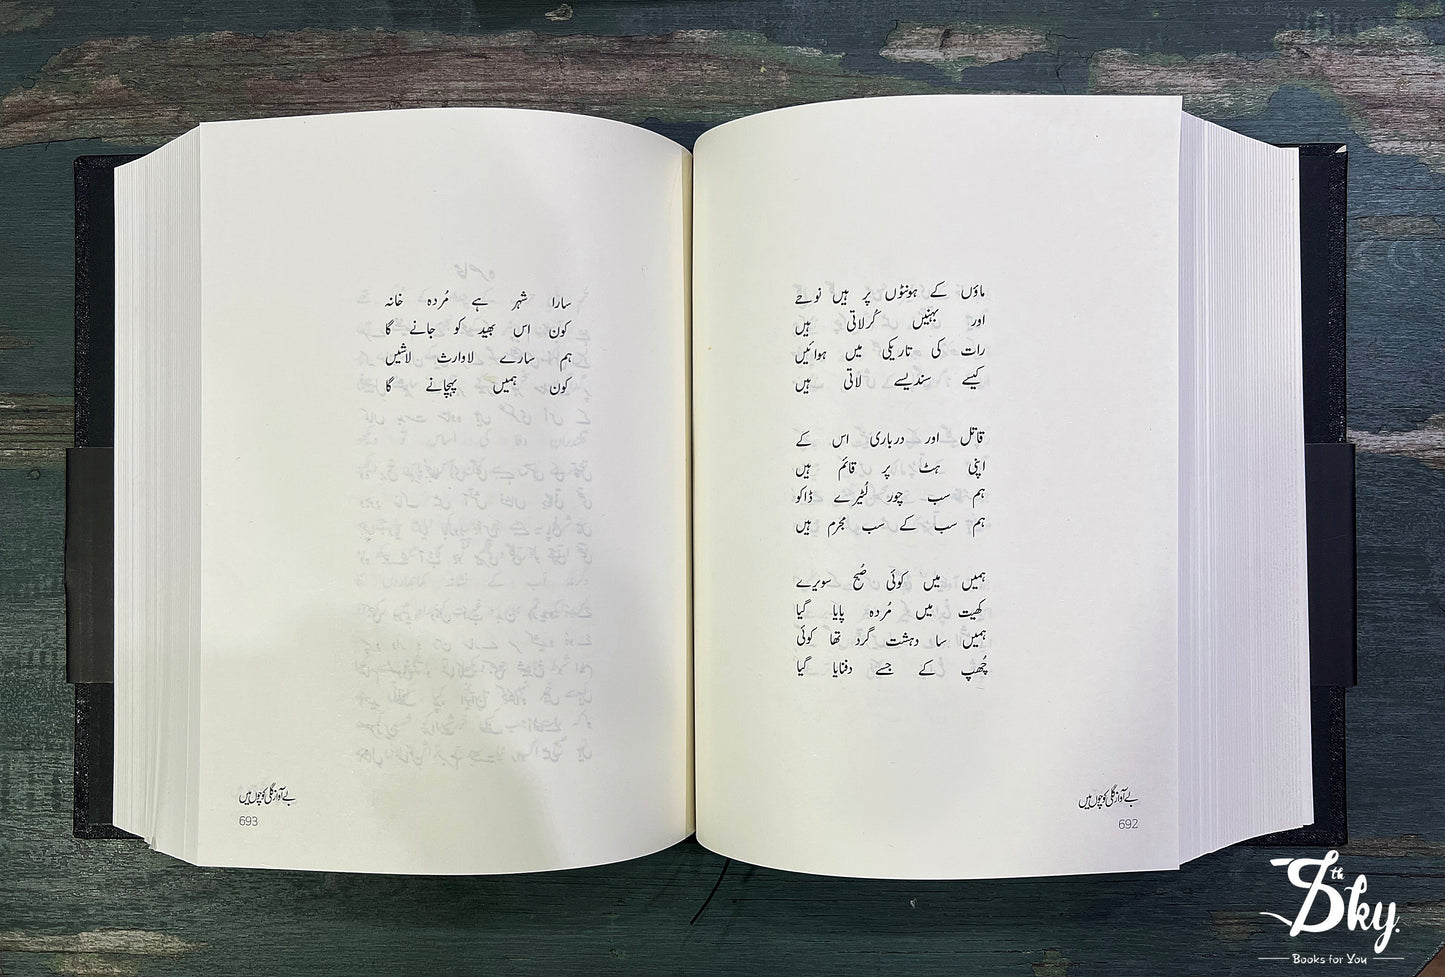 ماؤں کے ہونٹوں پر ہیں نوحے
اور بہنیں کُرلاتی ہیں
رات کی تاریکی میں ہوائیں
کیسے سندیسے لاتی ہیں
قاتل اور درباری اس کے
اپنی ہٹ پر قائم ہیں
ہم سب چور لُٹیرے ڈاکو
ہم سب کے سب مجرم ہیں
ہمیں میں کوئی صُبح سویرے
کھیت میں مُردہ پایا گیا
ہمیں سا دہشت گرد تھا کوئی
چُھپ کے جسے دفنایا گیا
بے آواز گلی کوچوں میں
692
سارا شہر ہے مُردہ خانہ
کون اس بھید کو جانے گا
ہم سارے لاوارث لاشیں
کون ہمیں پہچانے گا
بے آواز گلی کوچوں میں
693
th
Sky.
Books for You